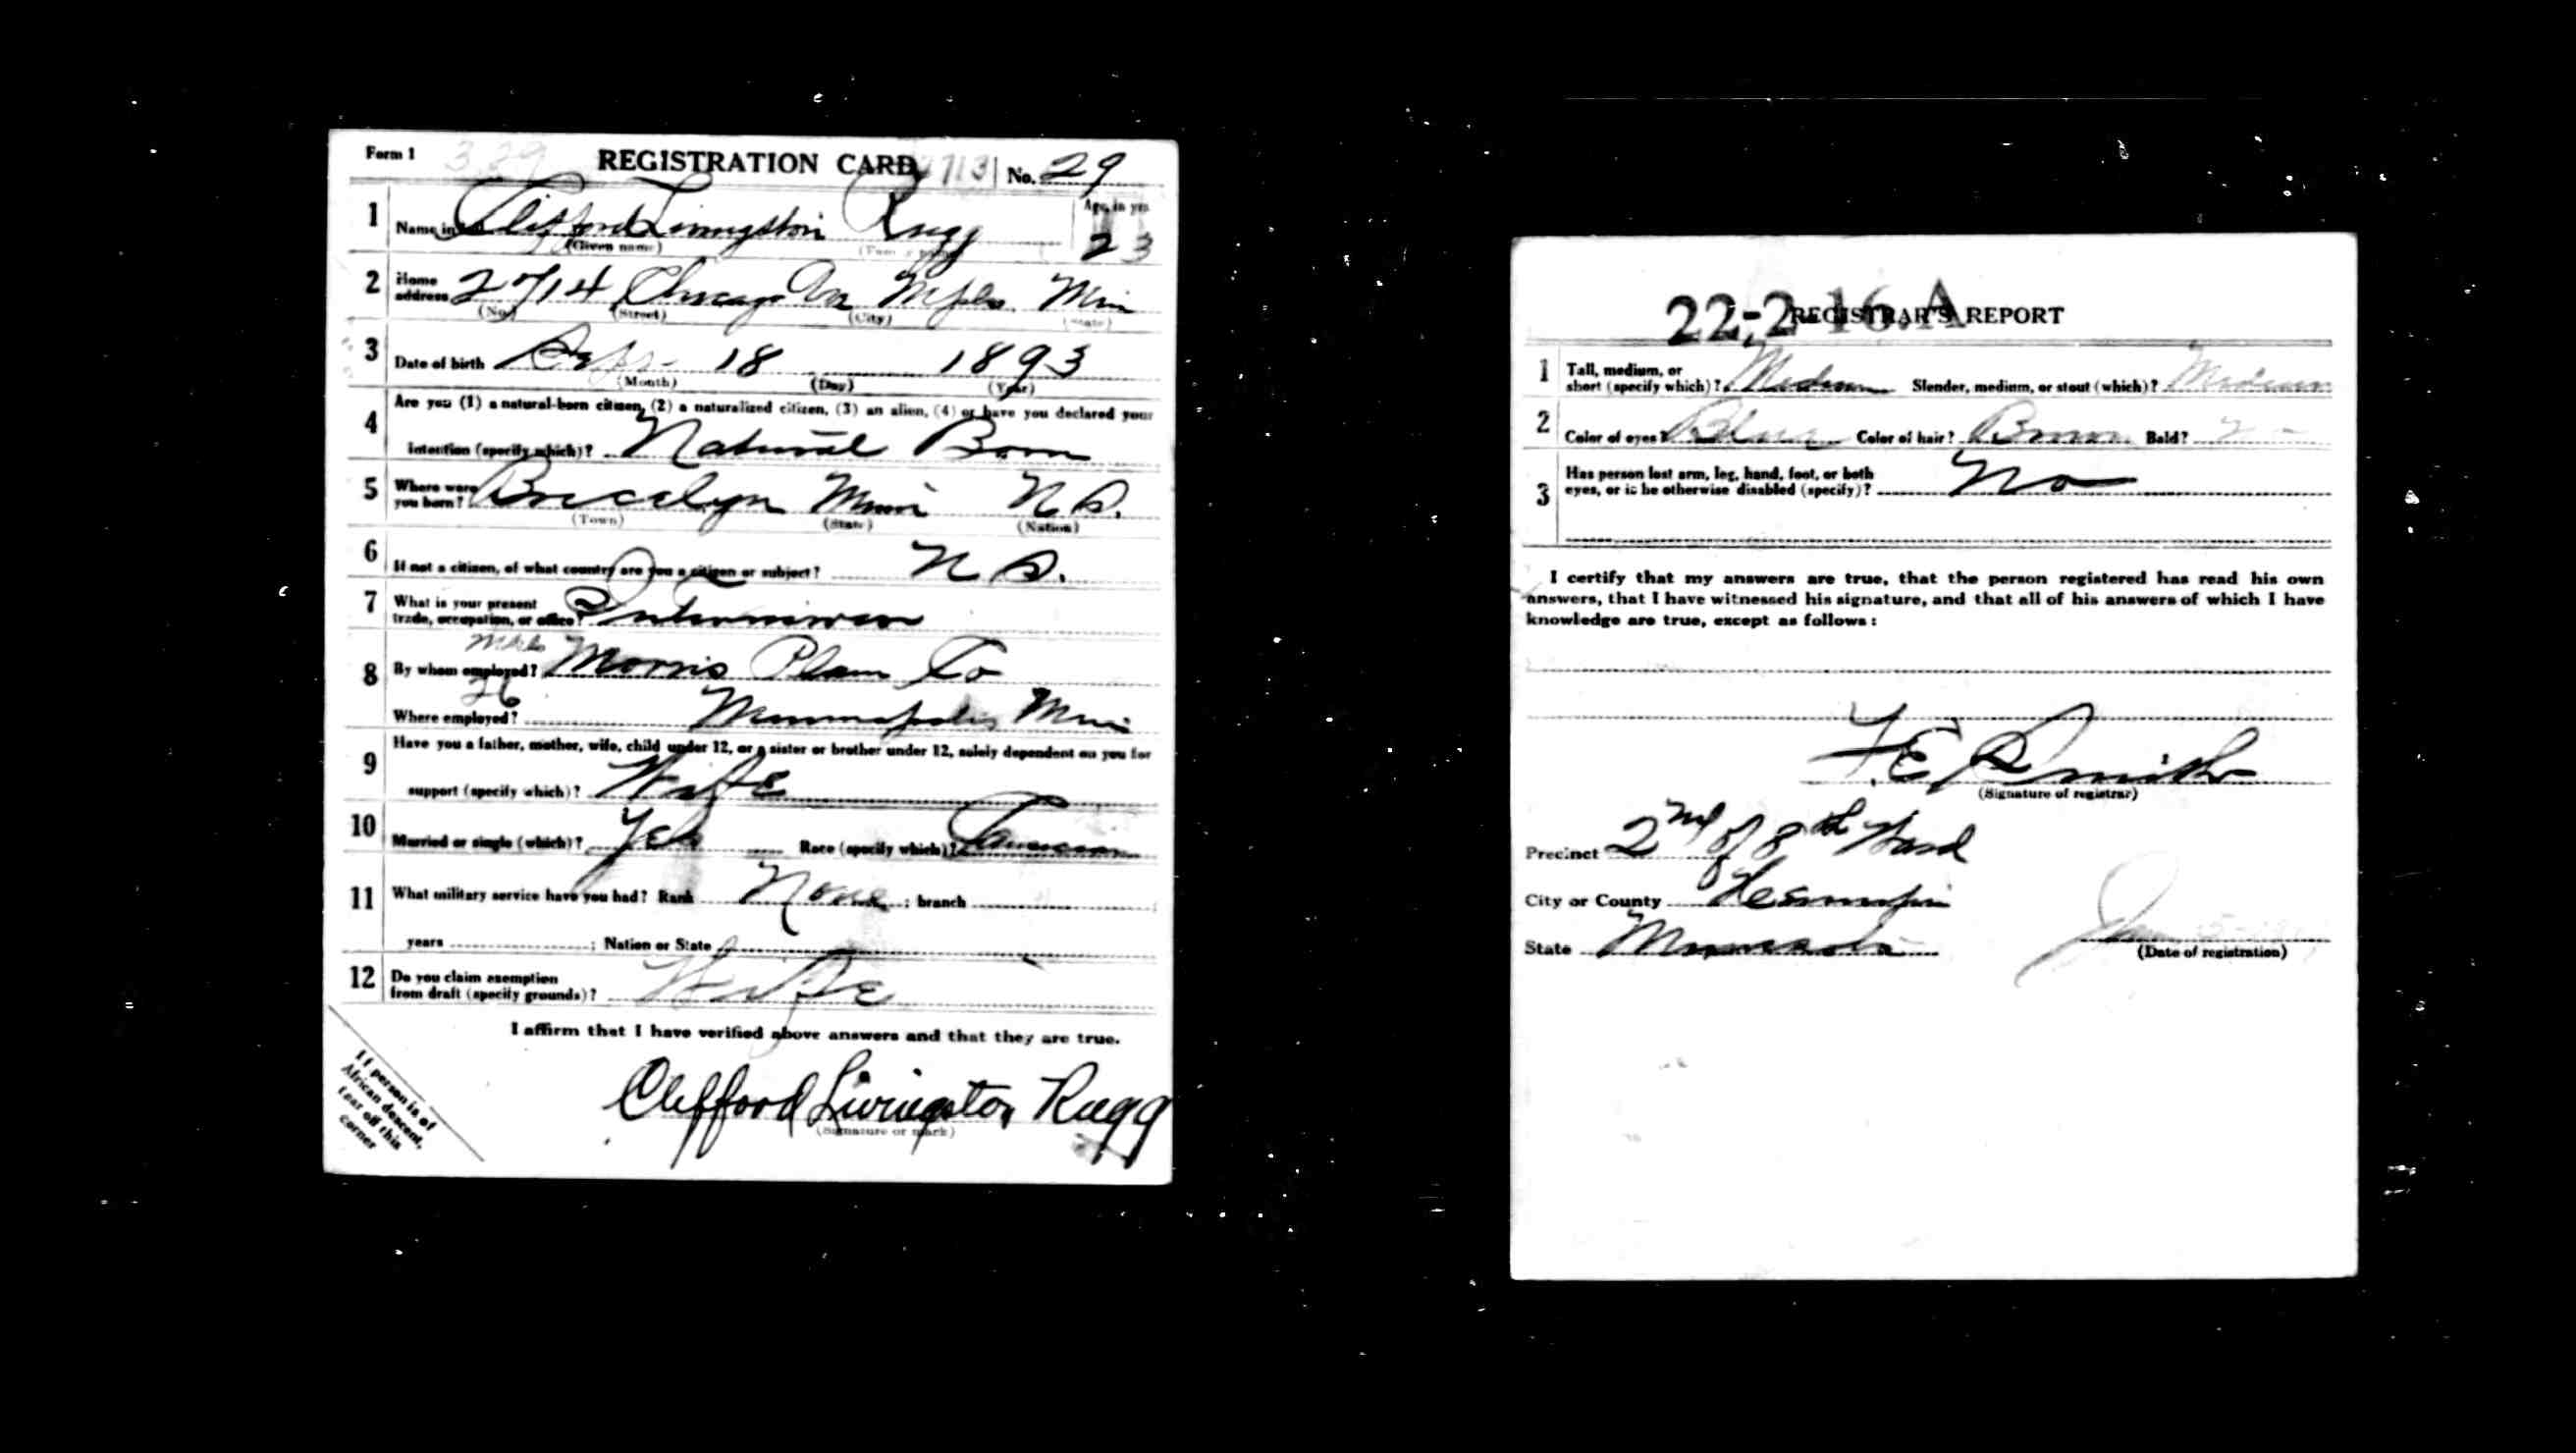 Form 1 329 REGISTRATION CARD 713 No. 29
1 Name in Clifford Livingston Rugg Age, in yrs
(Given name) (Family name) 23
2 Home address 2714 Chicago Av Mpls Min
(No.) (Street) (City) (State)
3 Date of birth 18 1893
(Month) (Day) (Year)
4 Are you (1) a natural-born citizen, (2) a naturalized citizen, (3) an alien, (4) or have you declared your
intention (specify which)? Natural Born
5 Where were you born? Bricelyn Minn U.S.
(Town) (State) (Nation)
6 If not a citizen, of what country are you a citizen or subject? U.S.
7 What is your present
trade, occupation, or office?
8 By whom employed? Morris Plan Co
26
Where employed? Minneapolis Min
9 Have you a father, mother, wife, child under 12, or a sister or brother under 12, solely dependent on you for
support (specify which)? Wife
10 Married or single (which)? Yes Race (specify which)?
11 What military service have you had? Rank None ; branch
years ; Nation or State
12 Do you claim exemption
from draft (specify grounds)? Wife
I affirm that I have verified above answers and that they are true.
Clifford Livingston Rugg
(Signature or mark)
If person is of
African descent,
tear off this
corner
22-2-16.A REGISTRAR'S REPORT
1 Tall, medium, or
short (specify which)? Medium Slender, medium, or stout (which)? Medium
2 Color of eyes? Blue Color of hair? Brown Bald? No
3 Has person lost arm, leg, hand, foot, or both
eyes, or is he otherwise disabled (specify)? No
I certify that my answers are true, that the person registered has read his own
answers, that I have witnessed his signature, and that all of his answers of which I have
knowledge are true, except as follows:
F. E. Smith
(Signature of registrar)
Precinct 2nd of 8th Ward
City or County Hennepin
State Minnesota
(Date of registration)